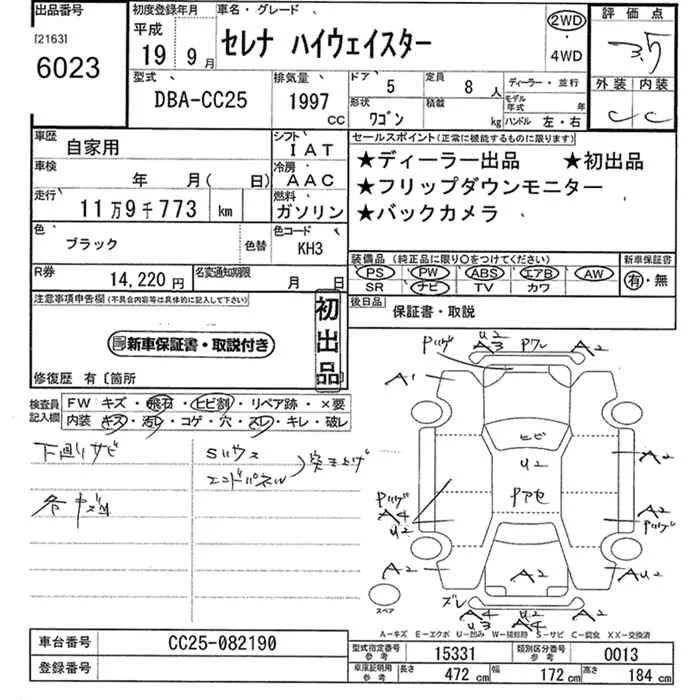 出品番号 初度登録年月 車名・グレード 評価点
[2163] 平成 セレナ ハイウェイスター 2WD・4WD 3.5
6023 19 9月
型式 排気量 ドア 5 定員 8人 ディーラー・並行 外装 内装
DBA-CC25 1997 CC 形状 ワゴン 積載 kg モデル年式 年 C C
ハンドル 左・右
車歴 自家用 シフト IAT セールスポイント(正常に機能するものに限ります)
車検 年 月( 日) 冷房 AAC ★ディーラー出品 ★初出品
走行 11万9千773 km 燃料 ガソリン ★フリップダウンモニター
★バックカメラ
色 ブラック 色替 色コード KH3
装備品(純正品に限り○をつけてください) 新車保証書
R券 14,220円 名変通知期限 月 日 PS PW ABS エアB AW 有・無
SR ナビ TV カワ
注意事項申告欄(不具合内容等は具体的に記入して下さい) 初出品 後日品 保証書・取説
新車保証書・取説付き
修復歴 有〔箇所
検査員記入欄 FW キズ・飛石・ヒビ割・リペア跡・×要
内装 キズ・汚レ・コゲ・穴・スレ・キレ・破レ
下廻りサビ Sハウス
エンドパネル 突き上げ
U2
A3 Pワレ
A1
ヒビ
U2 A2
Pアセ
A4 A2
U2
A2 A2 AU2
スレ A4 U2
U3 A4
スペア
A-キズ E-エクボ U-凹み W-補修跡 S-サビ C-腐食 XX-交換済
車台番号 CC25-082190 型式指定番号 参考 15331 類別区分番号 参考 0013
登録番号 車庫証明用 参考 長さ 472 cm 幅 172 cm 高さ 184 cm